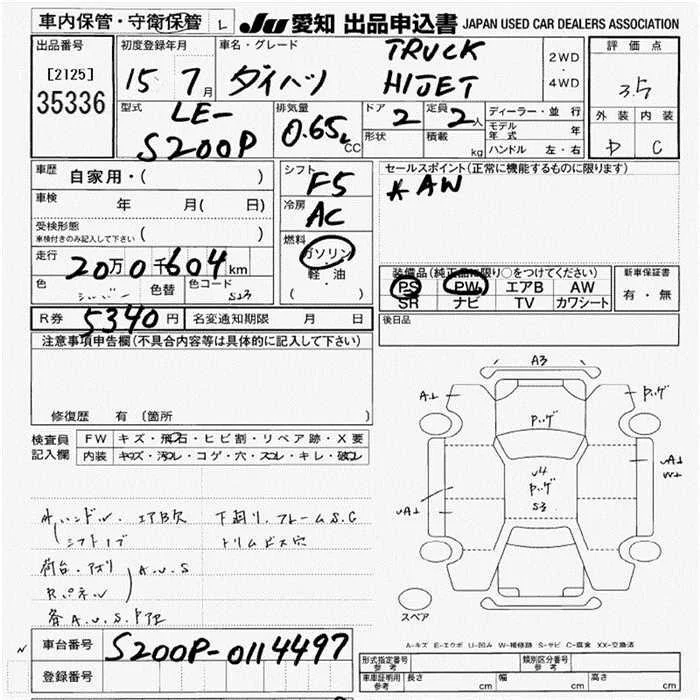 車内保管・守衛保管 L JU 愛知 出品申込書 JAPAN USED CAR DEALERS ASSOCIATION
出品番号 初度登録年月 車名・グレード 評価点
[2125] 15 7月 ダイハツ TRUCK 2WD
35336 HIJET ・4WD 3.5
型式 LE- 排気量 ドア 定員 ディーラー・並行 外装 内装
S200P 0.65L CC 2 2人 モデル年式 年 D C
形状 積載 kg ハンドル 左・右
車歴 自家用・( ) シフト F5 セールスポイント(正常に機能するものに限ります)
車検 年 月( 日) 冷房 AC AW
受検形態 ( )
車検付きのみ記入して下さい
走行 20万0千604km 燃料 ガソリン 装備品(純正品に限り○をつけてください) 新車保証書
色 シルバー 色替 色コード S23 軽・油 PS PW エアB AW 有・無
( ) SR ナビ TV カワシート
R券 5340円 名変通知期限 月 日 後日品
注意事項申告欄(不具合内容等は具体的に記入して下さい)
修復歴 有(箇所
検査員 FW キズ・飛石・ヒビ割・リペア跡・X要
記入欄 内装 キズ・汚レ・コゲ・穴・スレ・キレ・破レ
A3
ハンドル・エアB欠 下廻り、フレームS.C
シフトノブ トリムビス穴
荷台・アオリ A.U.S
Rパネル
各A.U.S.P
U4
S3
スペア
A-キズ E-エクボ U-凹み W-補修跡 S-サビ C-腐食 XX-交換済
車台番号 S200P-0114497
登録番号
形式指定番号 参考 類別区分番号 参考
車庫証明用 参考 長さ cm 幅 cm 高さ cm